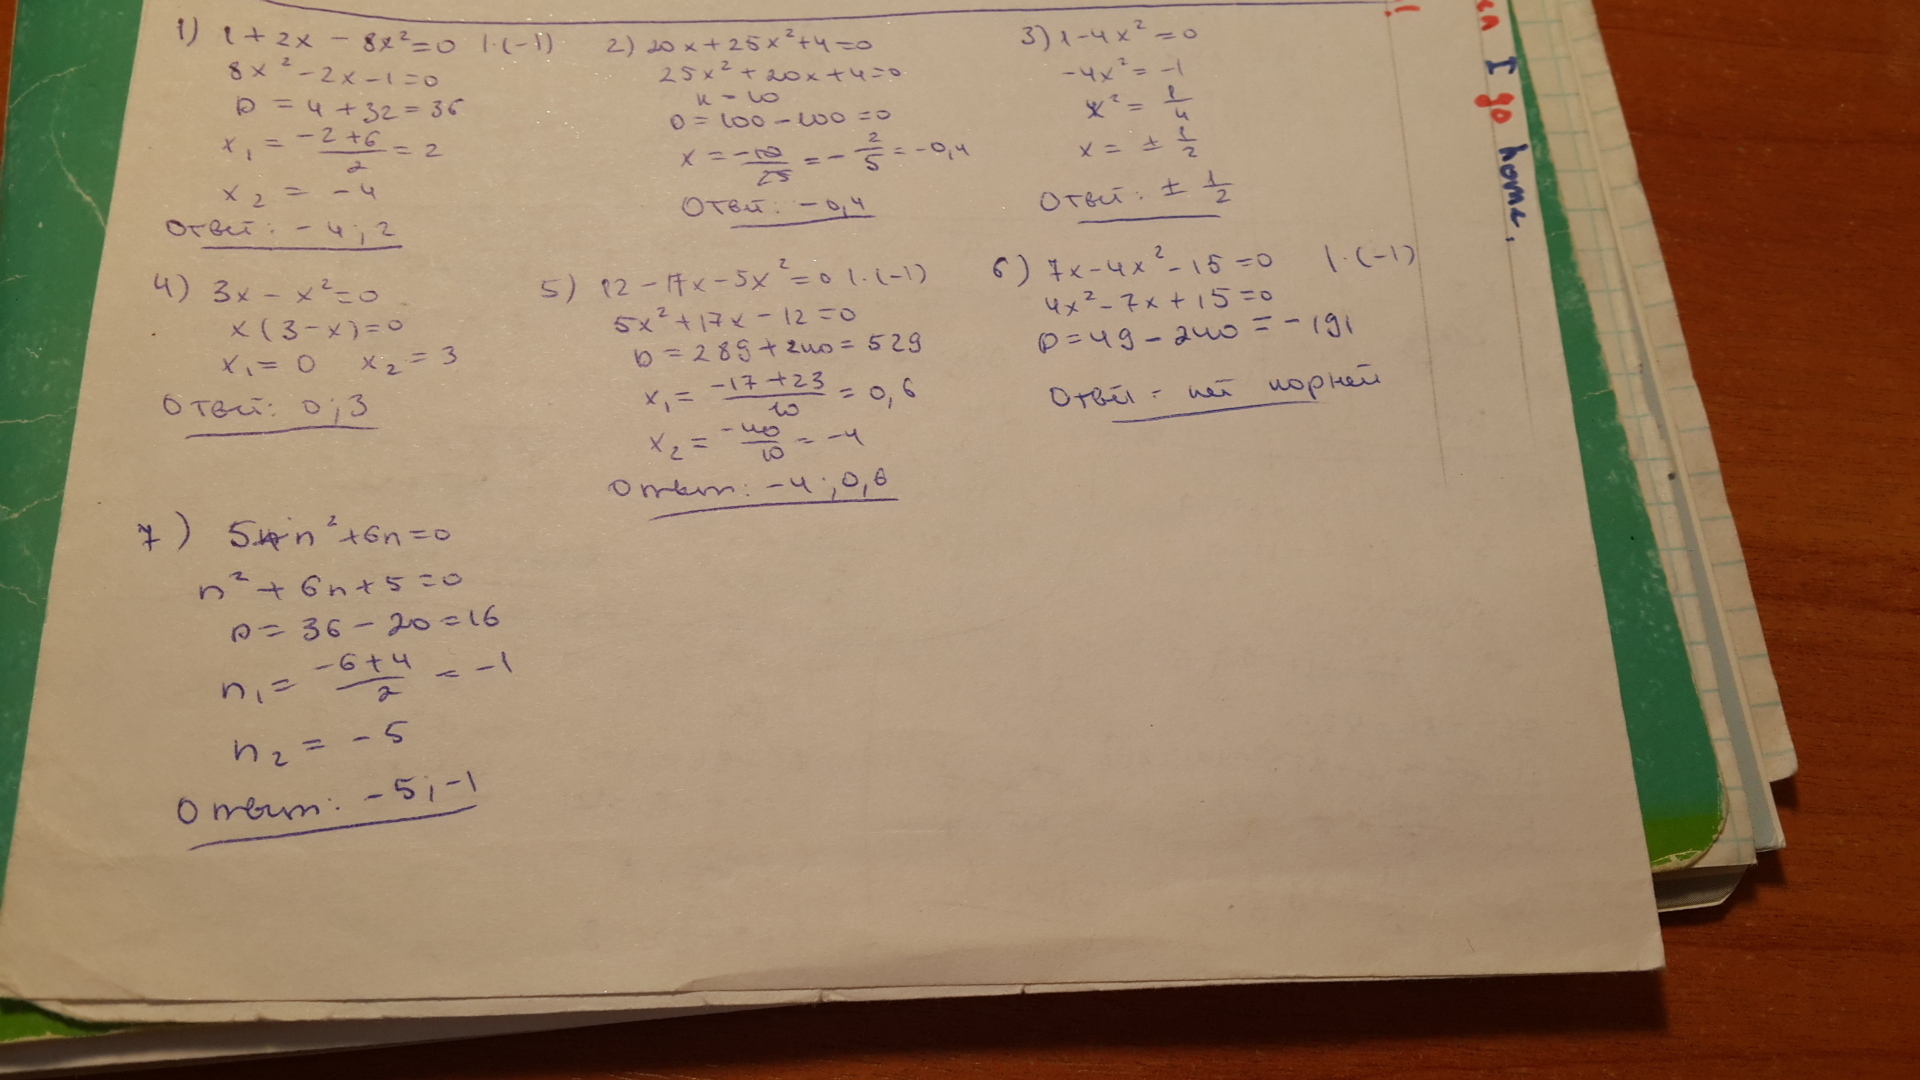 1) 1 + 2x - 8x² = 0 | · (-1)
8x² - 2x - 1 = 0
D = 4 + 32 = 36
x₁ = (-2 + 6)/2 = 2
x₂ = -4
Ответ: -4; 2
2) 20x + 25x² + 4 = 0
25x² + 20x + 4 = 0
k = 10
D = 100 - 100 = 0
x = -10/25 = -2/5 = -0,4
Ответ: -0,4
3) 1 - 4x² = 0
-4x² = -1
x² = 1/4
x = ± 1/2
Ответ: ± 1/2
4) 3x - x² = 0
x(3 - x) = 0
x₁ = 0 x₂ = 3
Ответ: 0; 3
5) 12 - 17x - 5x² = 0 | · (-1)
5x² + 17x - 12 = 0
D = 289 + 240 = 529
x₁ = (-17 + 23)/10 = 0,6
x₂ = -40/10 = -4
Ответ: -4; 0,6
6) 7x - 4x² - 15 = 0 | · (-1)
4x² - 7x + 15 = 0
D = 49 - 240 = -191
Ответ: нет корней
7) 5n² + 6n = 0
n² + 6n + 5 = 0
D = 36 - 20 = 16
n₁ = (-6 + 4)/2 = -1
n₂ = -5
Ответ: -5; -1
I go home.